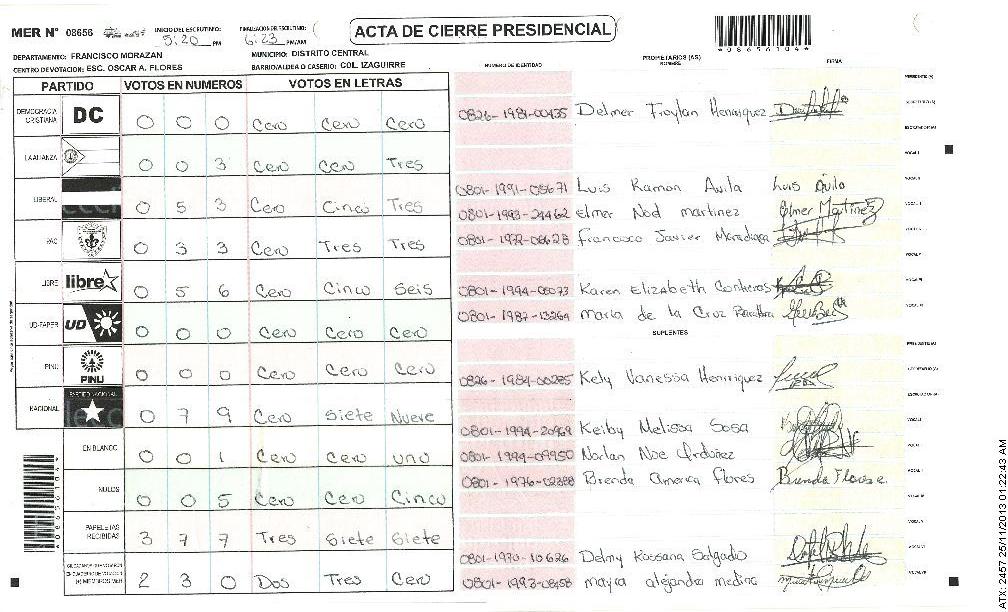 MER N° 08656
INICIO DEL ESCRUTINIO: 5:20 PM
FINALIZACION DEL ESCRUTINIO: 6:23 PM/AM
ACTA DE CIERRE PRESIDENCIAL
*08656104*
DEPARTAMENTO: FRANCISCO MORAZAN
MUNICIPIO: DISTRITO CENTRAL
CENTRO DE VOTACION: ESC. OSCAR A. FLORES
BARRIO/ALDEA O CASERIO: COL. IZAGUIRRE
NÚMERO DE IDENTIDAD
PROPIETARIOS (AS)
NOMBRE
FIRMA
PARTIDO VOTOS EN NUMEROS VOTOS EN LETRAS
DEMOCRACIA CRISTIANA DC 0 0 0 Cero Cero Cero
LA ALIANZA 0 0 3 Cero Cero Tres
LIBERAL 0 5 3 Cero Cinco Tres
PAC 0 3 3 Cero Tres Tres
LIBRE libre 0 5 6 Cero Cinco Seis
UD-FAPER UD 0 0 0 Cero Cero Cero
PINU PINU 0 0 0 Cero Cero Cero
NACIONAL PARTIDO NACIONAL 0 7 9 Cero Siete Nueve
EN BLANCO 0 0 1 Cero Cero uno
NULOS 0 0 5 Cero Cero Cinco
PAPELETAS RECIBIDAS 3 7 7 Tres Siete Siete
2 3 0 Dos Tres Cero
0826-1981-00435 Delmer Froylan Henriquez
0801-1991-05671 Luis Ramon Avila Luis Avila
0801-1993-24462 elmer Nod martinez Elmer Martinez
0801-1972-06628 Francisco Javier
0801-1994-05073 Karen Elizabeth Contreras
0801-1987-13264 maria de la Cruz
SUPLENTES
0826-1984-00285 Kely Vanessa Henriquez
0801-1994-20969 Keiby Melissa Sosa
0801-1994-09950 Norlan Noe Ordoñez
0801-1976-02388 Brenda America Flores Brenda Flores
0801-1970-10626 Delmy Rossana Salgado
0801-1993-08458 mayra alejandra medina
ATX: 2457 25/11/2013 01:22:43 AM